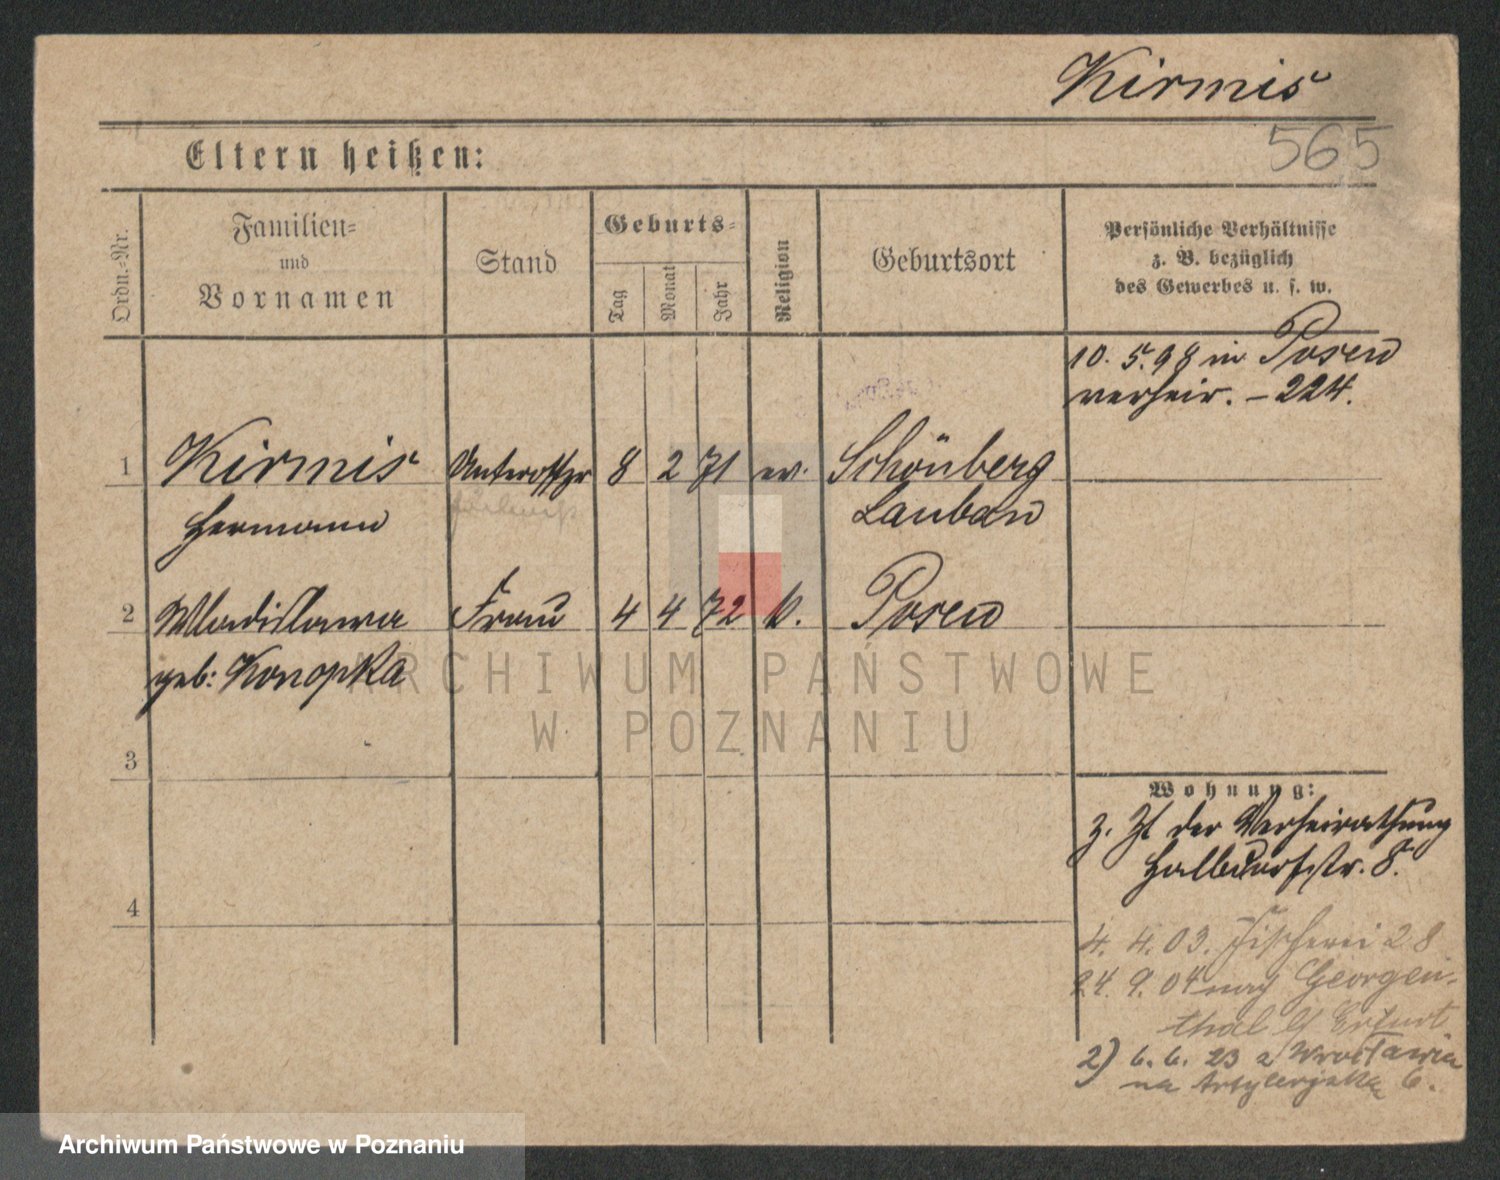 Kirmis
565
Eltern heißen:
Ordn.-Nr.
Familien-
und
Vornamen
Stand
Geburts-
Tag
Monat
Jahr
Religion
Geburtsort
Persönliche Verhältnisse
z. B. bezüglich
des Gewerbes u. s. w.
10. 5. 98 in Posen
verheir. – 224.
1 Kirmis Unteroffzr 8 2 71 ev. Schönberg
Hermann Lauban
2 Wladislawa Frau 4 4 72 k. Posen
geb: Konopka
3
Wohnung:
z. Zt der Verheirathung
Halbdorfstr. 8.
4
4. 4. 03. Fischerei 28
24. 9. 04 nach Georgen-
thal b/ Erfurt
2) 6. 6. 23 z Wrocławia
na Artyleryjską 6.
ARCHIWUM PAŃSTWOWE
W POZNANIU
Archiwum Państwowe w Poznaniu